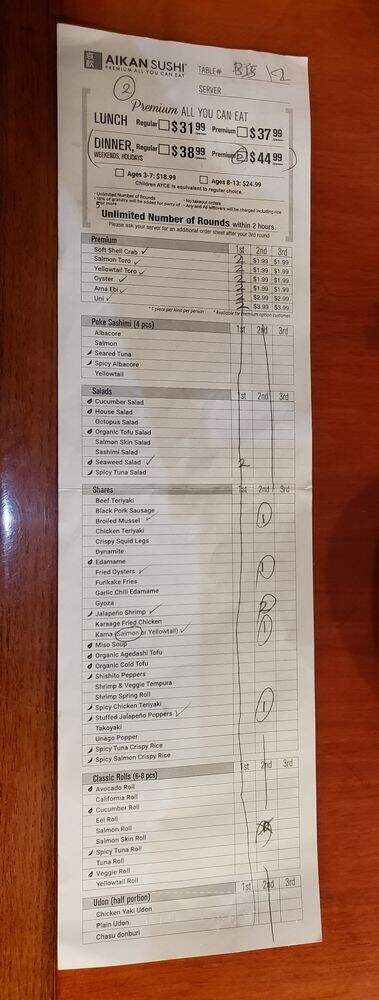 AIKAN SUSHI
PREMIUM ALL YOU CAN EAT
TABLE#
SERVER
2
Premium ALL YOU CAN EAT
LUNCH Regular $31.99 Premium $37.99
DINNER, Regular $38.99 Premium $44.99
WEEKENDS, HOLIDAYS
Ages 3-7: $18.99 Ages 8-13: $24.99
Children AYCE is equivalent to regular choice.
- Unlimited Number of Rounds - No takeout orders
- 18% of gratuity will be added for party of 5 or more - Any and All leftovers will be charged including rice
Unlimited Number of Rounds within 2 hours.
Please ask your server for an additional order sheet after your 3rd round
Premium 1st 2nd 3rd
Soft Shell Crab ✓ 2 $1.99 $1.99
Salmon Toro ✓ 2 $1.99 $1.99
Yellowtail Toro ✓ 2 $1.99 $1.99
Oyster ✓ 2 $1.99 $1.99
Ama Ebi ✓ 2 $2.99 $2.99
Uni ✓ 2 $3.99 $3.99
* 1 piece per kind per person * Available for Premium option customer
Poke Sashimi (4 pcs) 1st 2nd 3rd
Albacore
Salmon
Seared Tuna
Spicy Albacore
Yellowtail
Salads 1st 2nd 3rd
Cucumber Salad
House Salad
Octopus Salad
Organic Tofu Salad
Salmon Skin Salad
Sashimi Salad
Seaweed Salad ✓ 2
Spicy Tuna Salad
Shares 1st 2nd 3rd
Beef Teriyaki
Black Pork Sausage
Broiled Mussel ✓ 1
Chicken Teriyaki
Crispy Squid Legs
Dynamite
Edamame
Fried Oysters ✓ 1
Furikake Fries
Garlic Chili Edamame
Gyoza
Jalapeño Shrimp ✓ 2
Karaage Fried Chicken
Kama (Salmon or Yellowtail) ✓ 1
Miso Soup
Organic Agedashi Tofu
Organic Cold Tofu
Shishito Peppers
Shrimp & Veggie Tempura
Shrimp Spring Roll
Spicy Chicken Teriyaki
Stuffed Jalapeño Poppers ✓ 1
Takoyaki
Unago Popper
Spicy Tuna Crispy Rice
Spicy Salmon Crispy Rice
Classic Rolls (6-8 pcs) 1st 2nd 3rd
Avocado Roll
California Roll
Cucumber Roll
Eel Roll
Salmon Roll
Salmon Skin Roll
Spicy Tuna Roll
Tuna Roll
Veggie Roll
Yellowtail Roll
Udon (half portion) 1st 2nd 3rd
Chicken Yaki Udon
Plain Udon
Chasu donburi